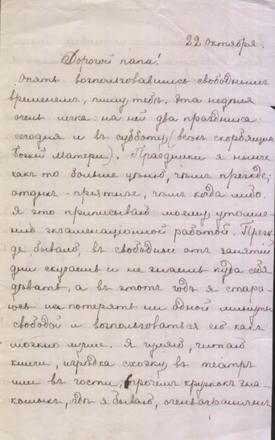 22 октября.
Дорогой папа!
Опять воспользовавшись свободнымъ
временемъ, пишу тебѣ. Эта недѣля
очень легка: на ней два праздника
сегодня и въ субботу (всѣхъ скорбящихъ
Божiей Матери). Праздники я нынче
какъ то больше цѣню, чѣмъ прежде;
отдыхъ прiятнѣе, чѣмъ когда либо.
Я это приписываю моему утомле-
нiю экзаменацiонной работой. Преж-
де бывало, въ свободные отъ занятiй
дни скучаешь и не знаешь куда себя
дѣвать, а въ этотъ годъ я стара-
юсь не потерять ни одной минуты
свободной и воспользоваться ею какъ
можно лучше. Я гуляю, читаю
книги, изрѣдка схожу въ театръ
или въ гости; кружокъ зна-
комыхъ, гдѣ я бываю, очень ограниченъ